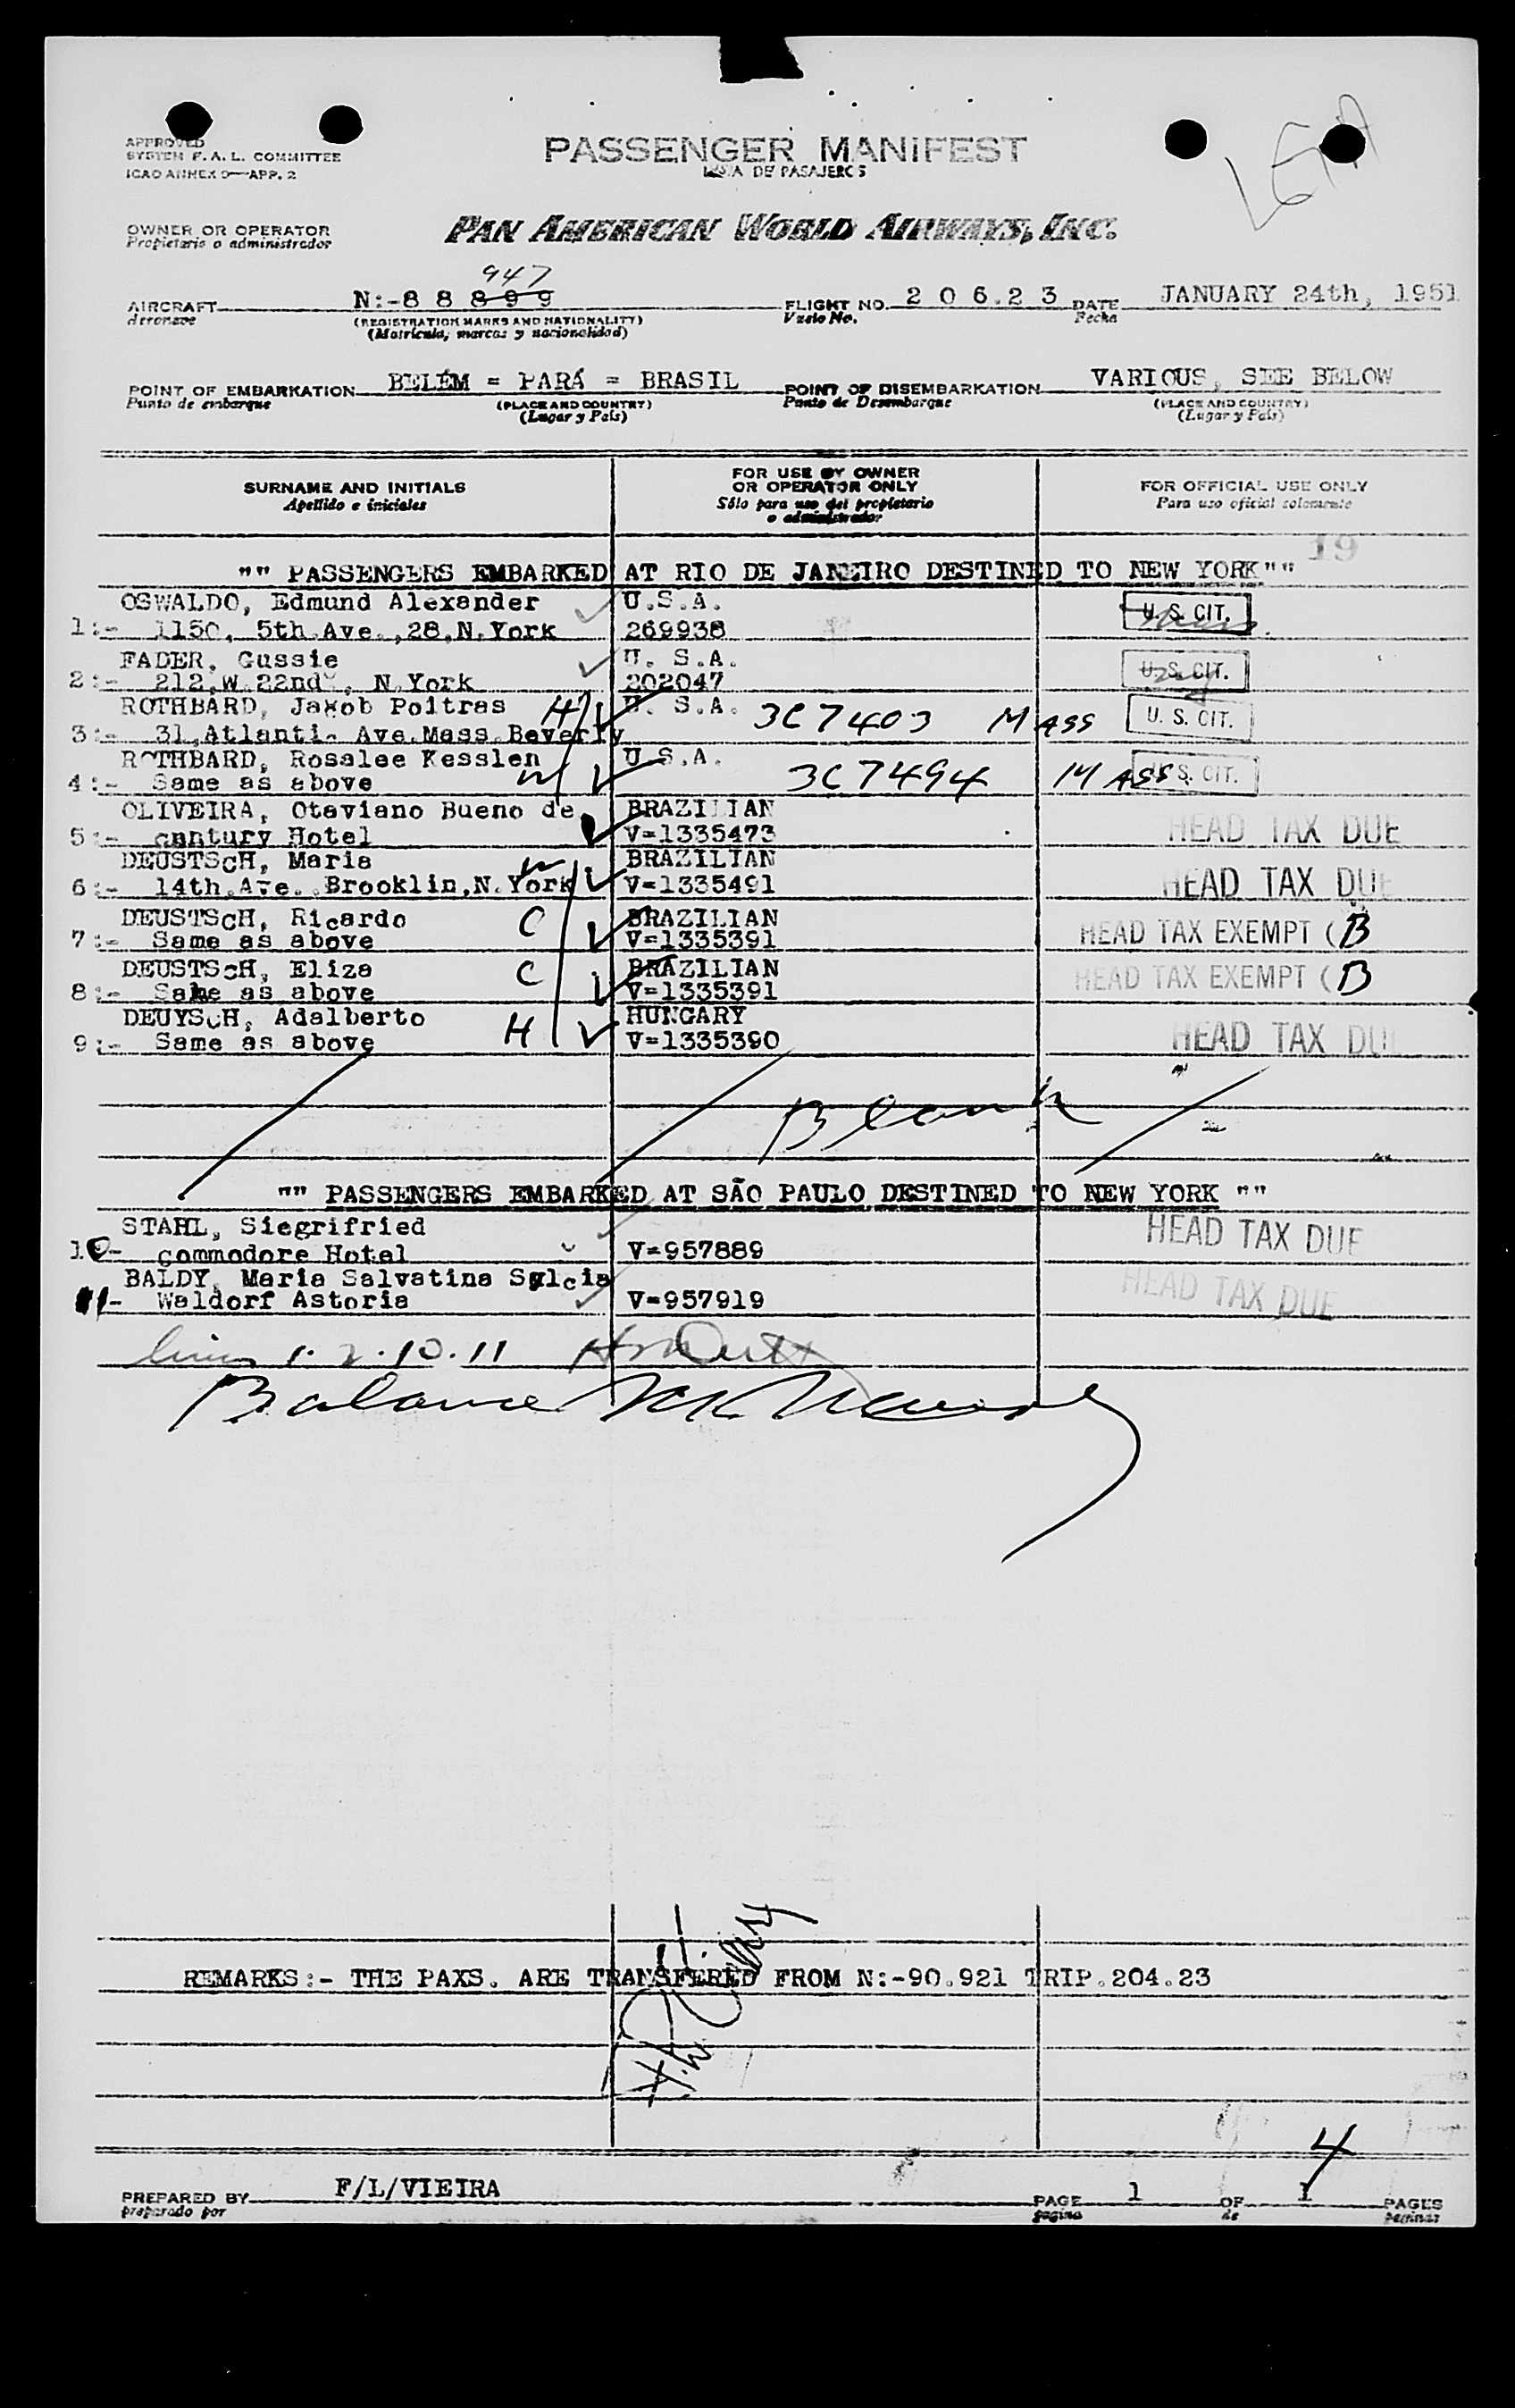 APPROVED
SYSTEM F. A. L. COMMITTEE
ICAO ANNEX 9—APP. 2
PASSENGER MANIFEST
LISTA DE PASAJEROS
OWNER OR OPERATOR
Propietario o administrador
PAN AMERICAN WORLD AIRWAYS, INC.
947
AIRCRAFT N:-8 8 8 9 9 FLIGHT NO. 2 0 6.2 3 DATE JANUARY 24th, 1951
Aeronave (REGISTRATION MARKS AND NATIONALITY) Vuelo No. Fecha
(Matrícula, marcas y nacionalidad)
POINT OF EMBARKATION BELÉM = PARÁ = BRASIL POINT OF DISEMBARKATION VARIOUS, SEE BELOW
Punto de embarque (PLACE AND COUNTRY) Punto de Desembarque (PLACE AND COUNTRY)
(Lugar y País) (Lugar y País)
SURNAME AND INITIALS
Apellido e iniciales
FOR USE BY OWNER
OR OPERATOR ONLY
Sólo para uso del propietario
o administrador
FOR OFFICIAL USE ONLY
Para uso oficial solamente
19
"" PASSENGERS EMBARKED AT RIO DE JANEIRO DESTINED TO NEW YORK""
OSWALDO, Edmund Alexander U.S.A. U. S. CIT.
1:- 1150, 5th.Ave.,28,N.York 269938
FADER, Gussie U. S.A. U. S. CIT.
2:- 212,W.22nd , N.York 202047
ROTHBARD, Jakob Poitras H U. S.A. 3C7403 MASS U. S. CIT.
3:- 31,Atlanti- Ave.Mass.Beverly
ROTHBARD, Rosalee Kesslen W U.S.A. 3C7494 MASS U. S. CIT.
4:- Same as above
OLIVEIRA, Otaviano Bueno de BRAZILIAN HEAD TAX DUE
5:- cnntury Hotel V=1335473
DEUSTScH, Maria W BRAZILIAN HEAD TAX DUE
6:- 14th.Ave. Brooklin,N.York V=1335491
DEUSTScH, Ricardo C BRAZILIAN HEAD TAX EXEMPT (B
7:- Same as above V=1335391
DEUSTScH, Eliza C BRAZILIAN HEAD TAX EXEMPT (B
8:- Same as above V=1335391
DEUYScH, Adalberto H HUNGARY HEAD TAX DUE
9:- Same as above V=1335390
Blank
"" PASSENGERS EMBARKED AT SÃO PAULO DESTINED TO NEW YORK ""
STAHL, Siegrifried HEAD TAX DUE
10- commodore Hotel V=957889
BALDY, Maria Salvatina Sylcia HEAD TAX DUE
11- Waldorf Astoria V=957919
lines 1. 2. 10. 11
Balance
REMARKS:- THE PAXS. ARE TRANSFERED FROM N:-90.921 TRIP.204.23
4
PREPARED BY F/L/VIEIRA PAGE 1 OF 1 PAGES
preparado por pagina de paginas